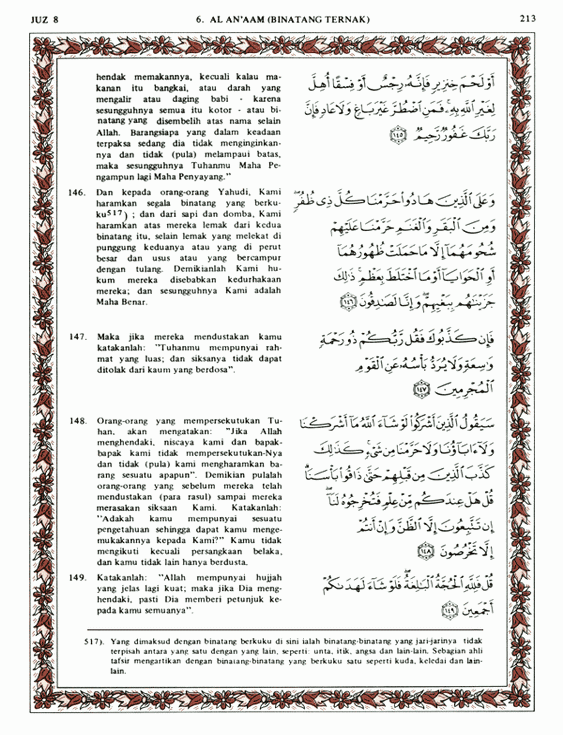 JUZ 8
6. AL AN'AAM (BINATANG TERNAK)
213
hendak memakannya, kecuali kalau ma-
kanan itu bangkai, atau darah yang
mengalir atau daging babi - karena
sesungguhnya semua itu kotor - atau bi-
natang yang disembelih atas nama selain
Allah. Barangsiapa yang dalam keadaan
terpaksa sedang dia tidak menginginkan-
nya dan tidak (pula) melampaui batas,
maka sesungguhnya Tuhanmu Maha Pe-
ngampun lagi Maha Penyayang."
146. Dan kepada orang-orang Yahudi, Kami
haramkan segala binatang yang berku-
ku517) ; dan dari sapi dan domba, Kami
haramkan atas mereka lemak dari kedua
binatang itu, selain lemak yang melekat di
punggung keduanya atau yang di perut
besar dan usus atau yang bercampur
dengan tulang. Demikianlah Kami hu-
kum mereka disebabkan kedurhakaan
mereka; dan sesungguhnya Kami adalah
Maha Benar.
147. Maka jika mereka mendustakan kamu
katakanlah: "Tuhanmu mempunyai rah-
mat yang luas; dan siksanya tidak dapat
ditolak dari kaum yang berdosa".
148. Orang-orang yang mempersekutukan Tu-
han, akan mengatakan: "Jika Allah
menghendaki, niscaya kami dan bapak-
bapak kami tidak mempersekutukan-Nya
dan tidak (pula) kami mengharamkan ba-
rang sesuatu apapun". Demikian pulalah
orang-orang yang sebelum mereka telah
mendustakan (para rasul) sampai mereka
merasakan siksaan Kami. Katakanlah:
"Adakah kamu mempunyai sesuatu
pengetahuan sehingga dapat kamu menge-
mukakannya kepada Kami?" Kamu tidak
mengikuti kecuali persangkaan belaka,
dan kamu tidak lain hanya berdusta.
149. Katakanlah: "Allah mempunyai hujjah
yang jelas lagi kuat; maka jika Dia meng-
hendaki, pasti Dia memberi petunjuk ke-
pada kamu semuanya".
أَوْ لَحْمَ خِنزِيرٍ فَإِنَّهُ رِجْسٌ أَوْ فِسْقًا أُهِلَّ
لِغَيْرِ اللَّهِ بِهِ ۚ فَمَنِ اضْطُرَّ غَيْرَ بَاغٍ وَلَا عَادٍ فَإِنَّ
رَبَّكَ غَفُورٌ رَّحِيمٌ ١٤٥
وَعَلَى الَّذِينَ هَادُوا حَرَّمْنَا كُلَّ ذِي ظُفُرٍ ۖ
وَمِنَ الْبَقَرِ وَالْغَنَمِ حَرَّمْنَا عَلَيْهِمْ
شُحُومَهُمَا إِلَّا مَا حَمَلَتْ ظُهُورُهُمَا
أَوِ الْحَوَايَا أَوْ مَا اخْتَلَطَ بِعَظْمٍ ۚ ذَٰلِكَ
جَزَيْنَاهُم بِبَغْيِهِمْ ۖ وَإِنَّا لَصَادِقُونَ ١٤٦
فَإِن كَذَّبُوكَ فَقُل رَّبُّكُمْ ذُو رَحْمَةٍ
وَاسِعَةٍ وَلَا يُرَدُّ بَأْسُهُ عَنِ الْقَوْمِ
الْمُجْرِمِينَ ١٤٧
سَيَقُولُ الَّذِينَ أَشْرَكُوا لَوْ شَاءَ اللَّهُ مَا أَشْرَكْنَا
وَلَا آبَاؤُنَا وَلَا حَرَّمْنَا مِن شَيْءٍ ۚ كَذَٰلِكَ
كَذَّبَ الَّذِينَ مِن قَبْلِهِمْ حَتَّىٰ ذَاقُوا بَأْسَنَا ۗ
قُلْ هَلْ عِندَكُم مِّنْ عِلْمٍ فَتُخْرِجُوهُ لَنَا ۖ
إِن تَتَّبِعُونَ إِلَّا الظَّنَّ وَإِنْ أَنتُمْ
إِلَّا تَخْرُصُونَ ١٤٨
قُلْ فَلِلَّهِ الْحُجَّةُ الْبَالِغَةُ ۖ فَلَوْ شَاءَ لَهَدَاكُمْ
أَجْمَعِينَ ١٤٩
517). Yang dimaksud dengan binatang berkuku di sini ialah binatang-binatang yang jari-jarinya tidak
terpisah antara yang satu dengan yang lain, seperti: unta, itik, angsa dan lain-lain. Sebagian ahli
tafsir mengartikan dengan binatang-binatang yang berkuku satu seperti kuda, keledai dan lain-
lain.